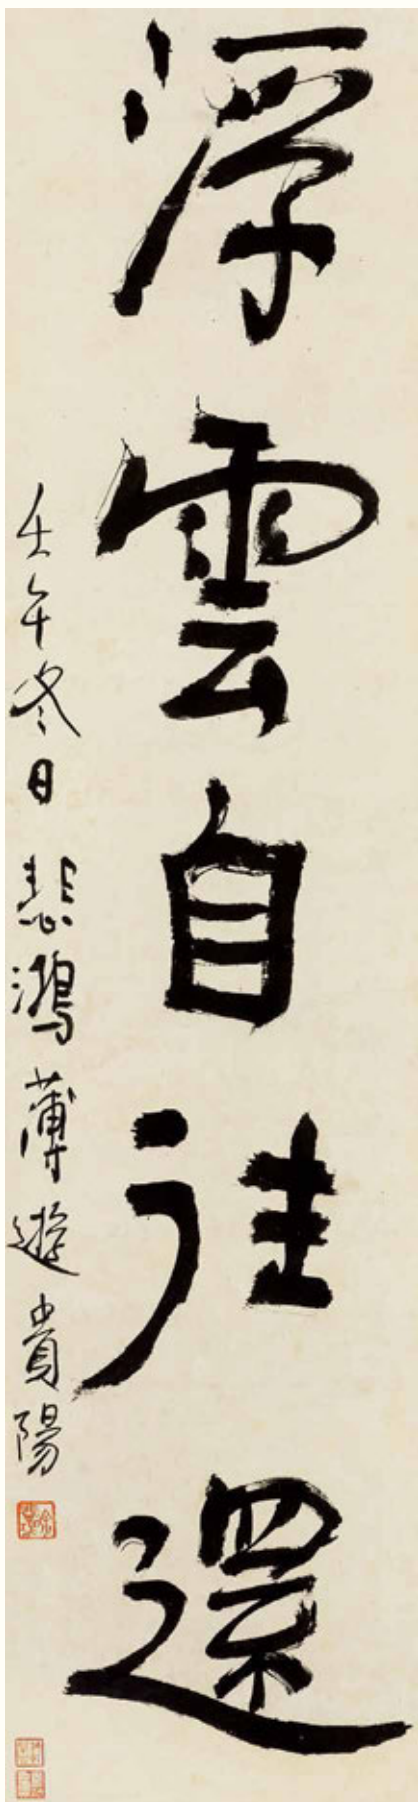 浮雲自往還
壬午冬日 悲鴻薄遊貴陽